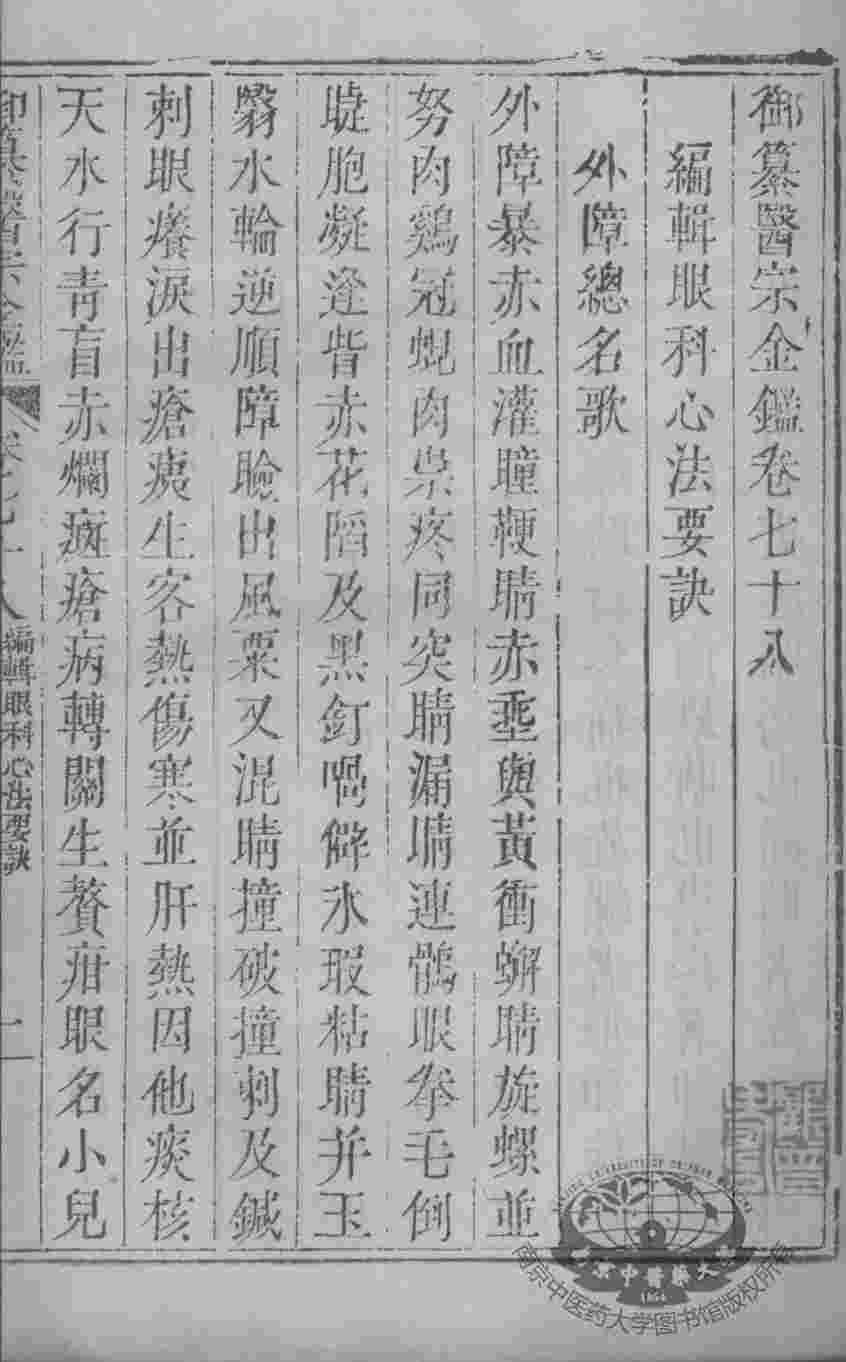 御纂醫宗金鑑卷七十八
編輯眼科心法要訣
外障總名歌
外障暴赤血灌瞳鞕睛赤垩與黃衝蠏睛旋螺並
努肉鷄冠蜆肉祟疼同突睛漏睛連鶻眼拳毛倒
睫胞凝逩眥赤花陷及黑釘喎僻氷瑕粘睛并玉
翳水輪逆順障瞼出風粟又混睛撞破撞刺及鍼
刺眼癢淚出瘡痍生客熱傷寒並肝熱因他痰核
天水行青盲赤爛癍瘡病轉關生贅疳眼名小兒
御纂醫宗金鑑 卷七十八 編輯眼科心法要訣 一
南京中医药大学图书馆版权所有